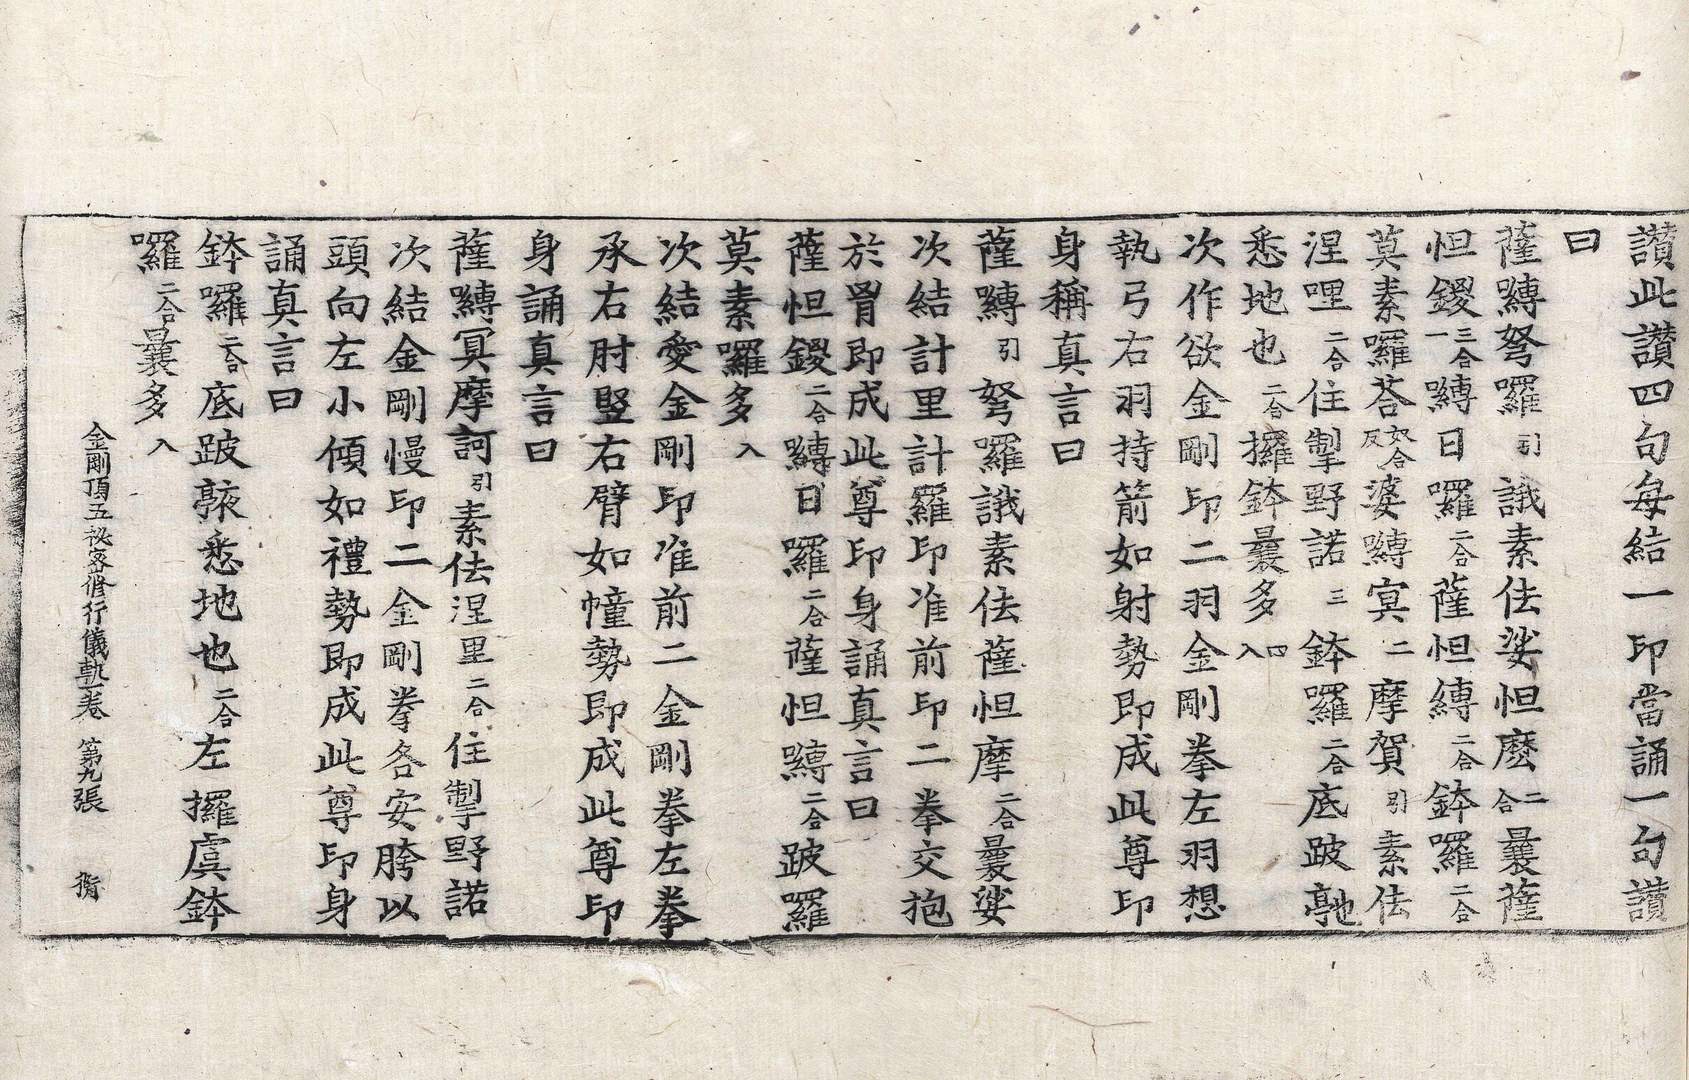 讃此讃四句每結一印當誦一句讃
曰
薩嚩弩囉引誐素佉娑怛麽二合曩薩
怛鑁三合一嚩日囉二合薩怛嚩二合鉢囉二合
莫素囉荅如合反婆嚩寘二摩賀引素佉
涅哩二合住掣野諾三鉢囉二合底跛𠅫
悉地也二合攞鉢曩多四入
次作欲金剛印二羽金剛拳左羽想
執弓右羽持箭如射勢即成此尊印
身稱真言曰
薩嚩引弩囉誐素佉薩怛摩二合曩娑
次結計里計羅印准前印二拳交抱
於胷即成此尊印身誦真言曰
薩怛鑁二合嚩日囉二合薩怛嚩二合跛羅
莫素囉多入
次結愛金剛印准前二金剛拳左拳
承右肘竪右臂如幢勢即成此尊印
身誦真言曰
薩嚩寘摩訶引素佉涅里二合住掣野諾
次結金剛慢印二金剛拳各安胯以
頭向左小傾如禮勢即成此尊印身
誦真言曰
鉢囉二合底跛𠅫悉地也二合左攞虞鉢
囉二合曩多入
金剛頂五祕密修行儀軌一卷 第九張 衡